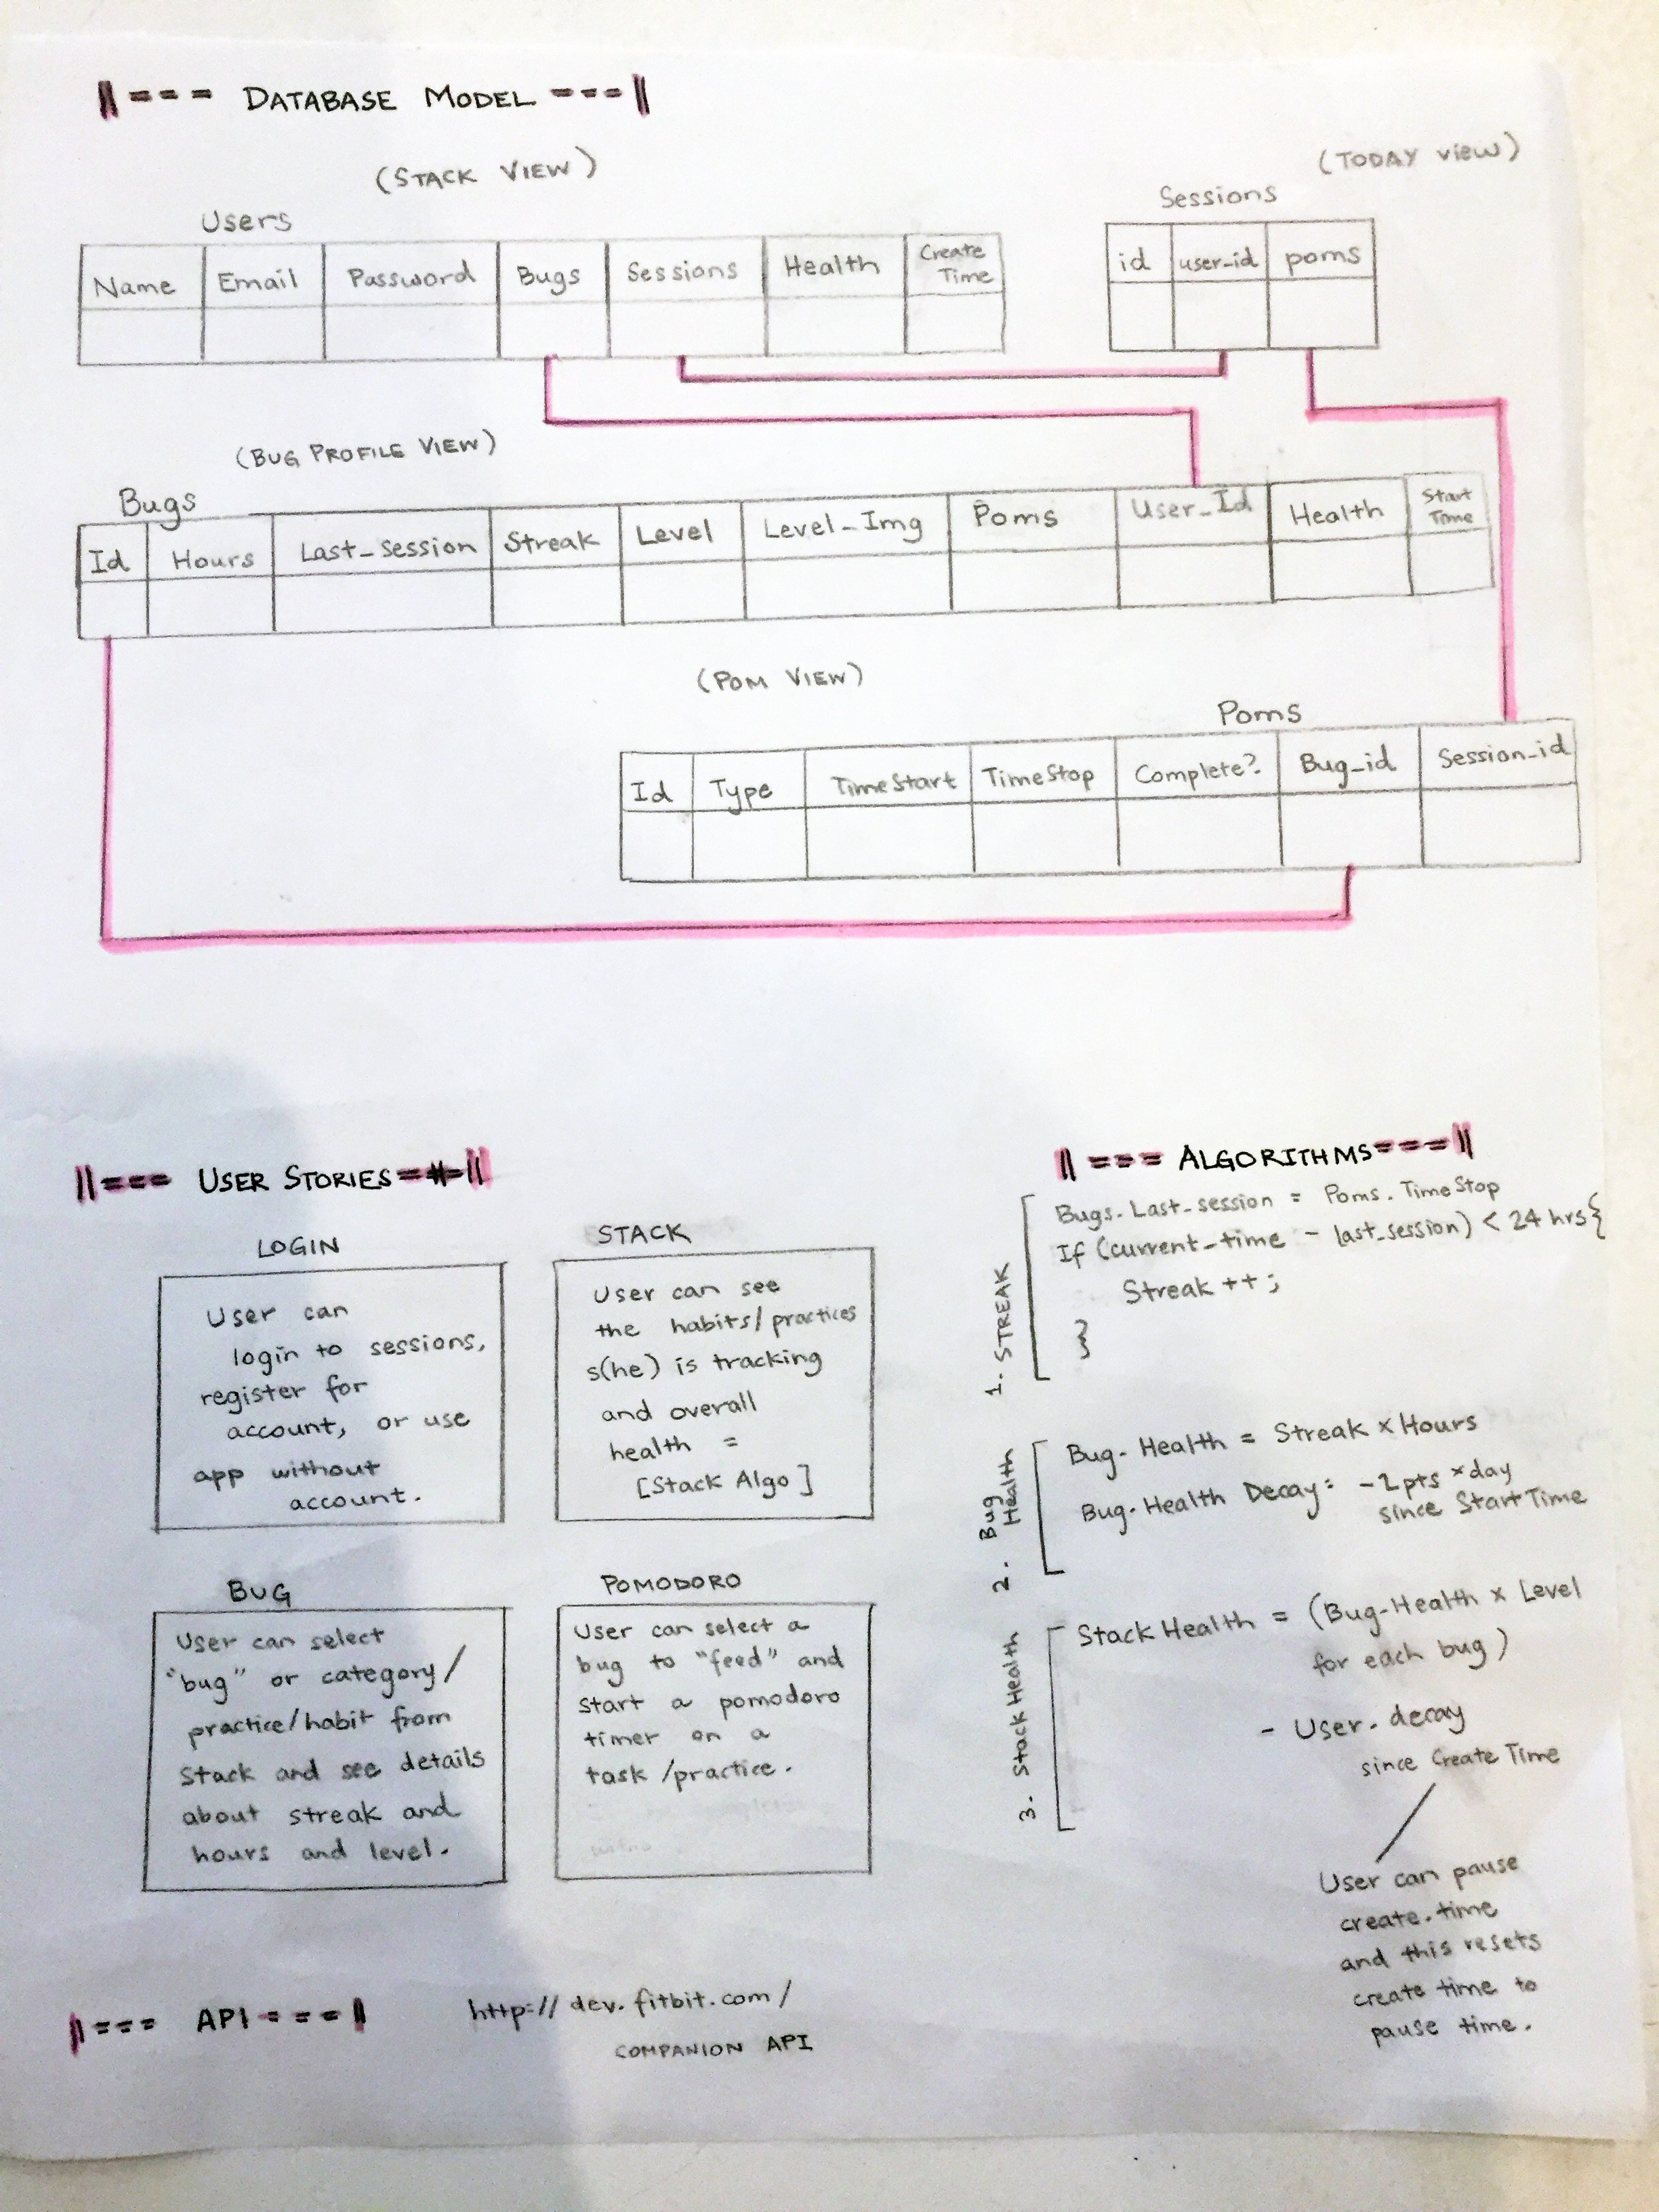 ||=== DATABASE MODEL ===||
(STACK VIEW)
(TODAY VIEW)
Users
Name Email Password Bugs Sessions Health Create Time
Sessions
id user_id poms
(BUG PROFILE VIEW)
Bugs
Id Hours Last_session Streak Level Level_Img Poms User_Id Health Start Time
(POM VIEW)
Poms
Id Type TimeStart TimeStop Complete? Bug_id Session_id
||=== USER STORIES ===||
LOGIN
User can
login to sessions,
register for
account, or use
app without
account.
STACK
User can see
the habits/practices
s(he) is tracking
and overall
health =
[Stack Algo]
BUG
User can select
"bug" or category/
practice/habit from
stack and see details
about streak and
hours and level.
POMODORO
User can select a
bug to "feed" and
start a pomodoro
timer on a
task/practice.
||=== ALGORITHMS===||
1. STREAK
Bugs.Last_session = Poms.TimeStop
If (current_time - last_session) < 24 hrs{
Streak ++;
}
2. Bug Health
Bug-Health = Streak x Hours
Bug-Health Decay: pts x day
since StartTime
3. Stack Health
Stack Health = (Bug-Health x Level
for each bug)
- User.decay
since Create Time
User can pause
create.time
and this resets
create time to
pause time.
||=== API ===||
http://dev.fitbit.com/
COMPANION API